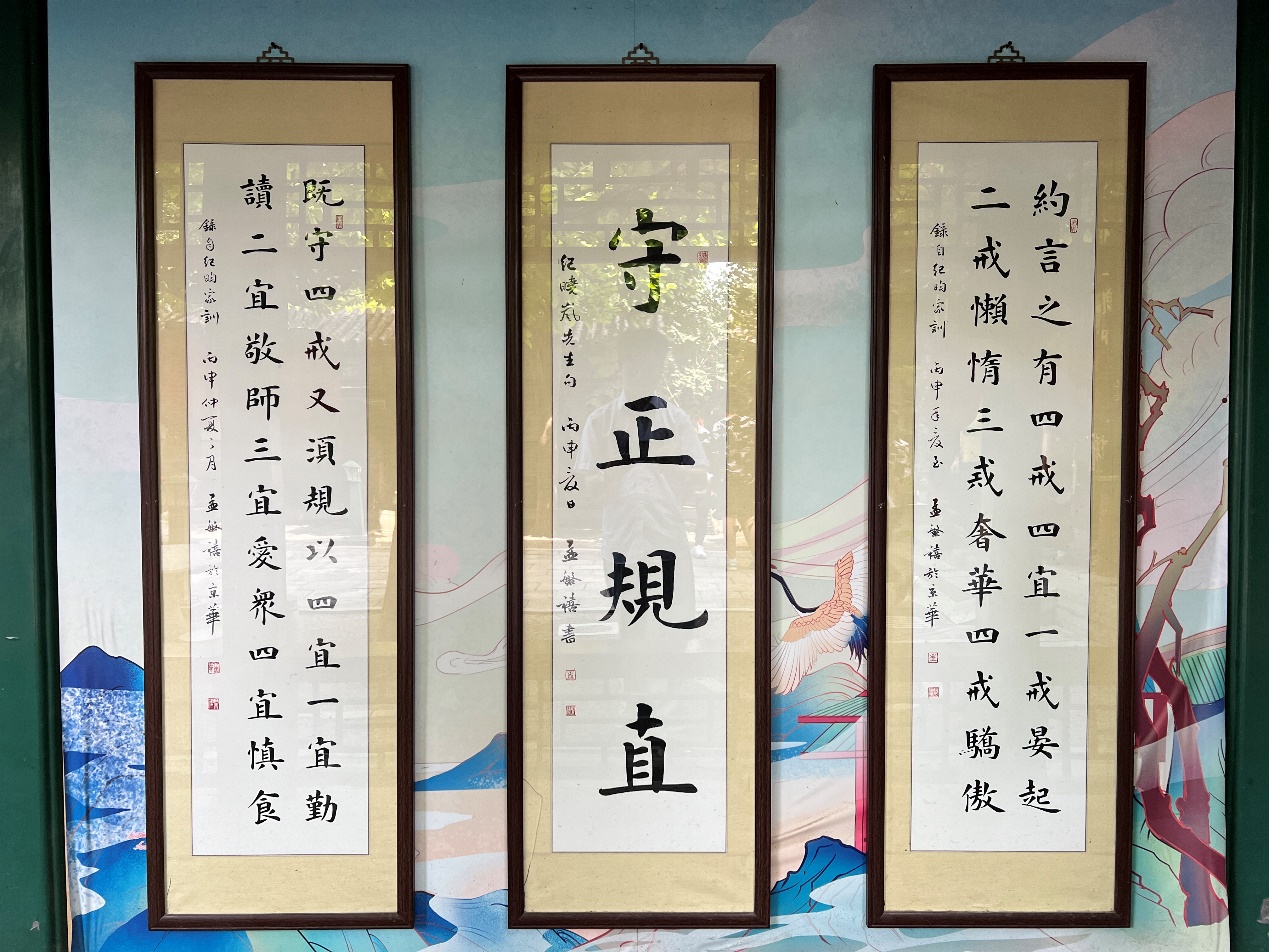 約言之有四戒四宜一戒晏起
二戒懶惰三戒奢華四戒驕傲
錄自紀昀家訓 丙申年夏至 孟繁禧於京華
守正規直
紀曉嵐先生句 丙申夏日 孟繁禧書
既守四戒又須規以四宜一宜勤
讀二宜敬師三宜愛衆四宜慎食
錄自紀昀家訓 丙申仲夏之月 孟繁禧於京華